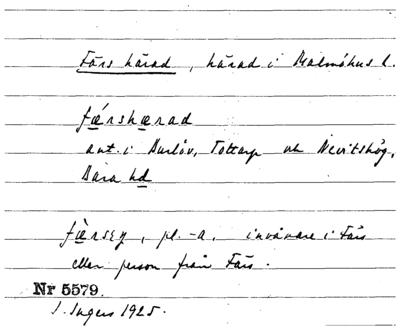 Färs härad, härad i Malmöhus l.
fǽrshærad
ant. i Burlöv, Tottarp och Nevitshög,
Bara hd
fæ̀rsey, pl. -a, invånare i Färs
eller person från Färs.
Nr 5579.
I. Ingers 1925.